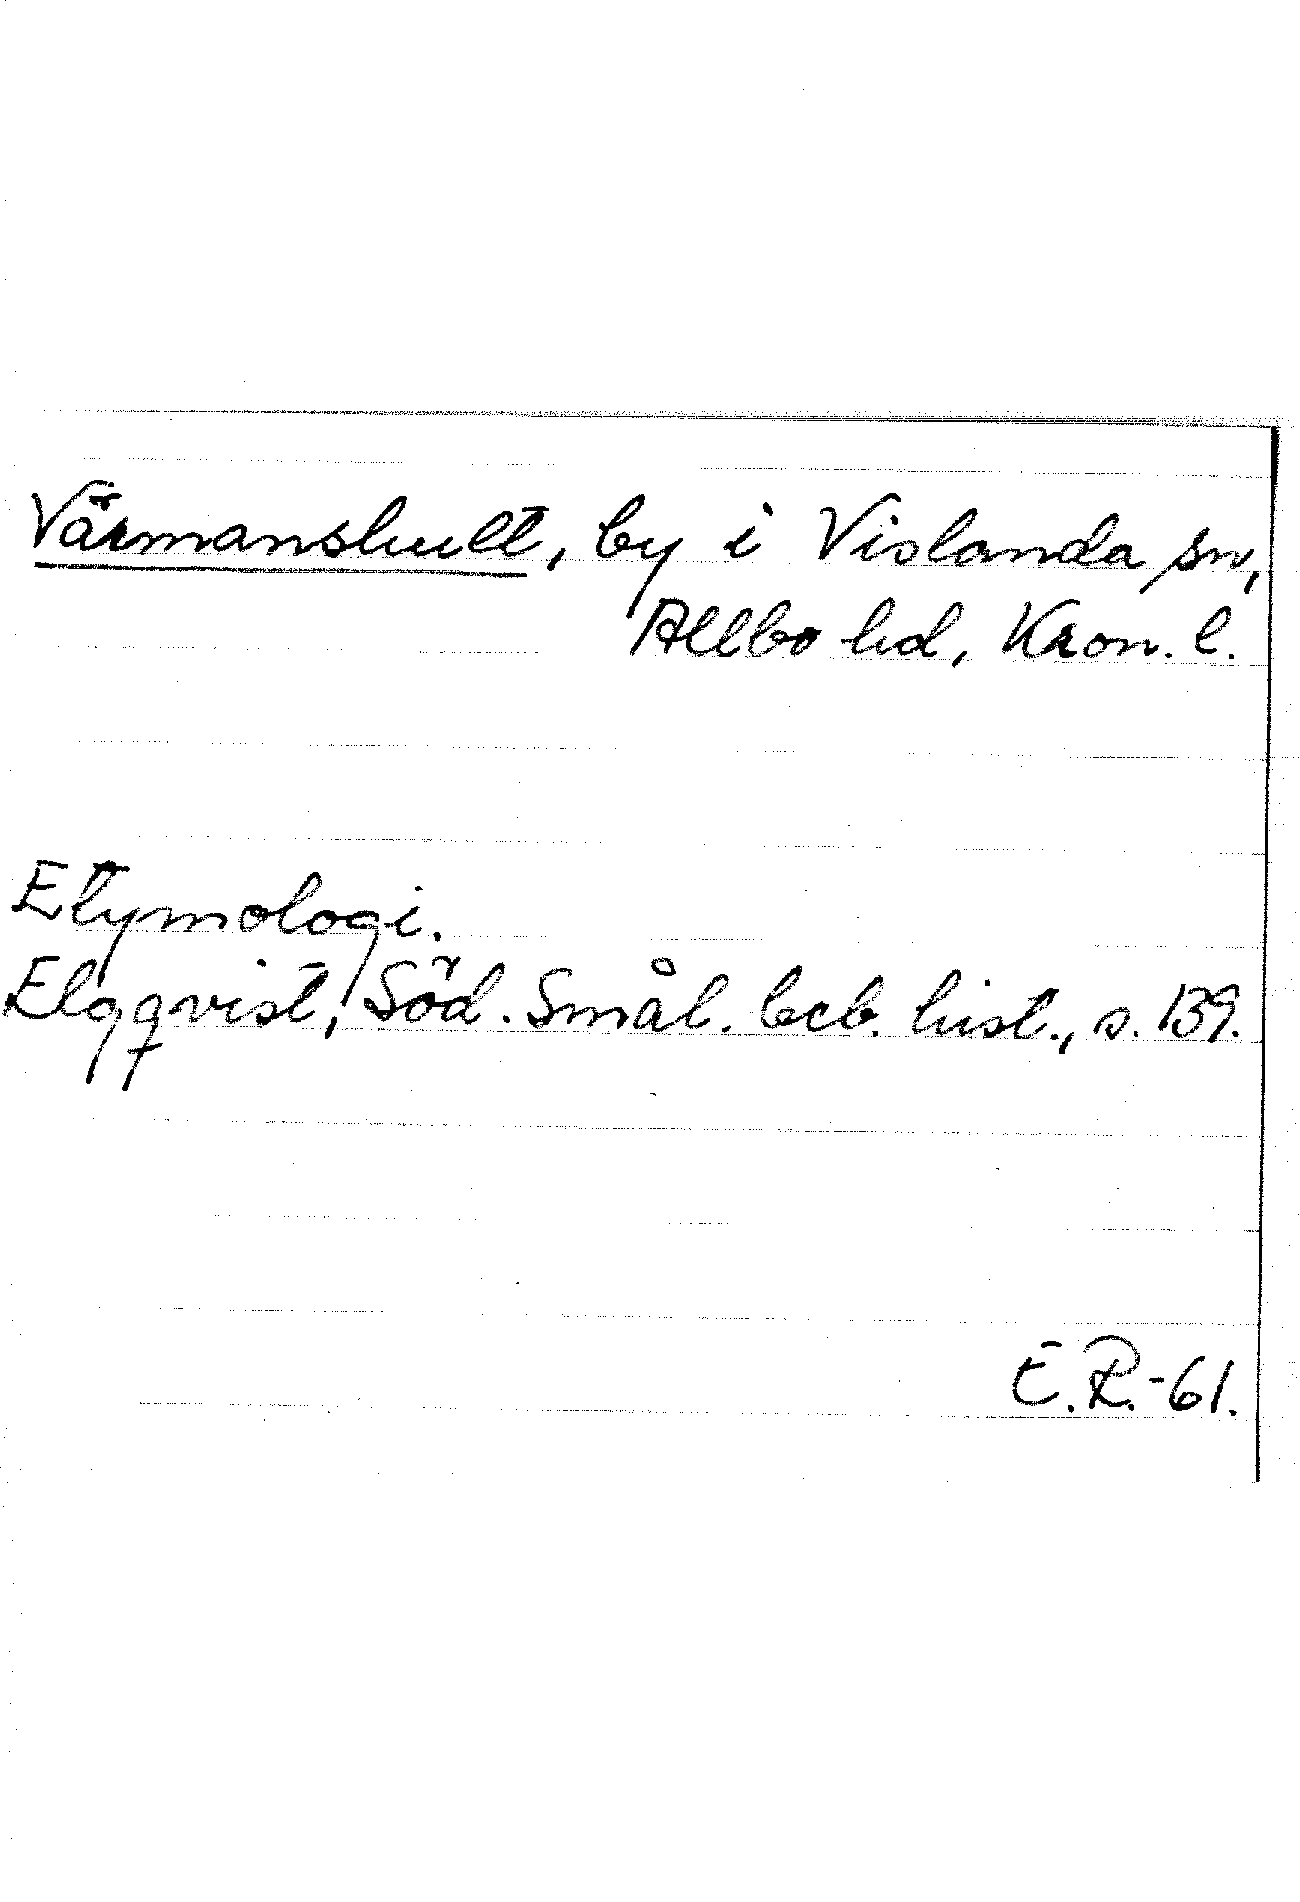 Värmanshult, by i Vislanda sn,
Allbo hd, Kron. l.
Etymologi.
Elgqvist, Söd. Smål. beb. hist., s. 139.
E.R.-61.